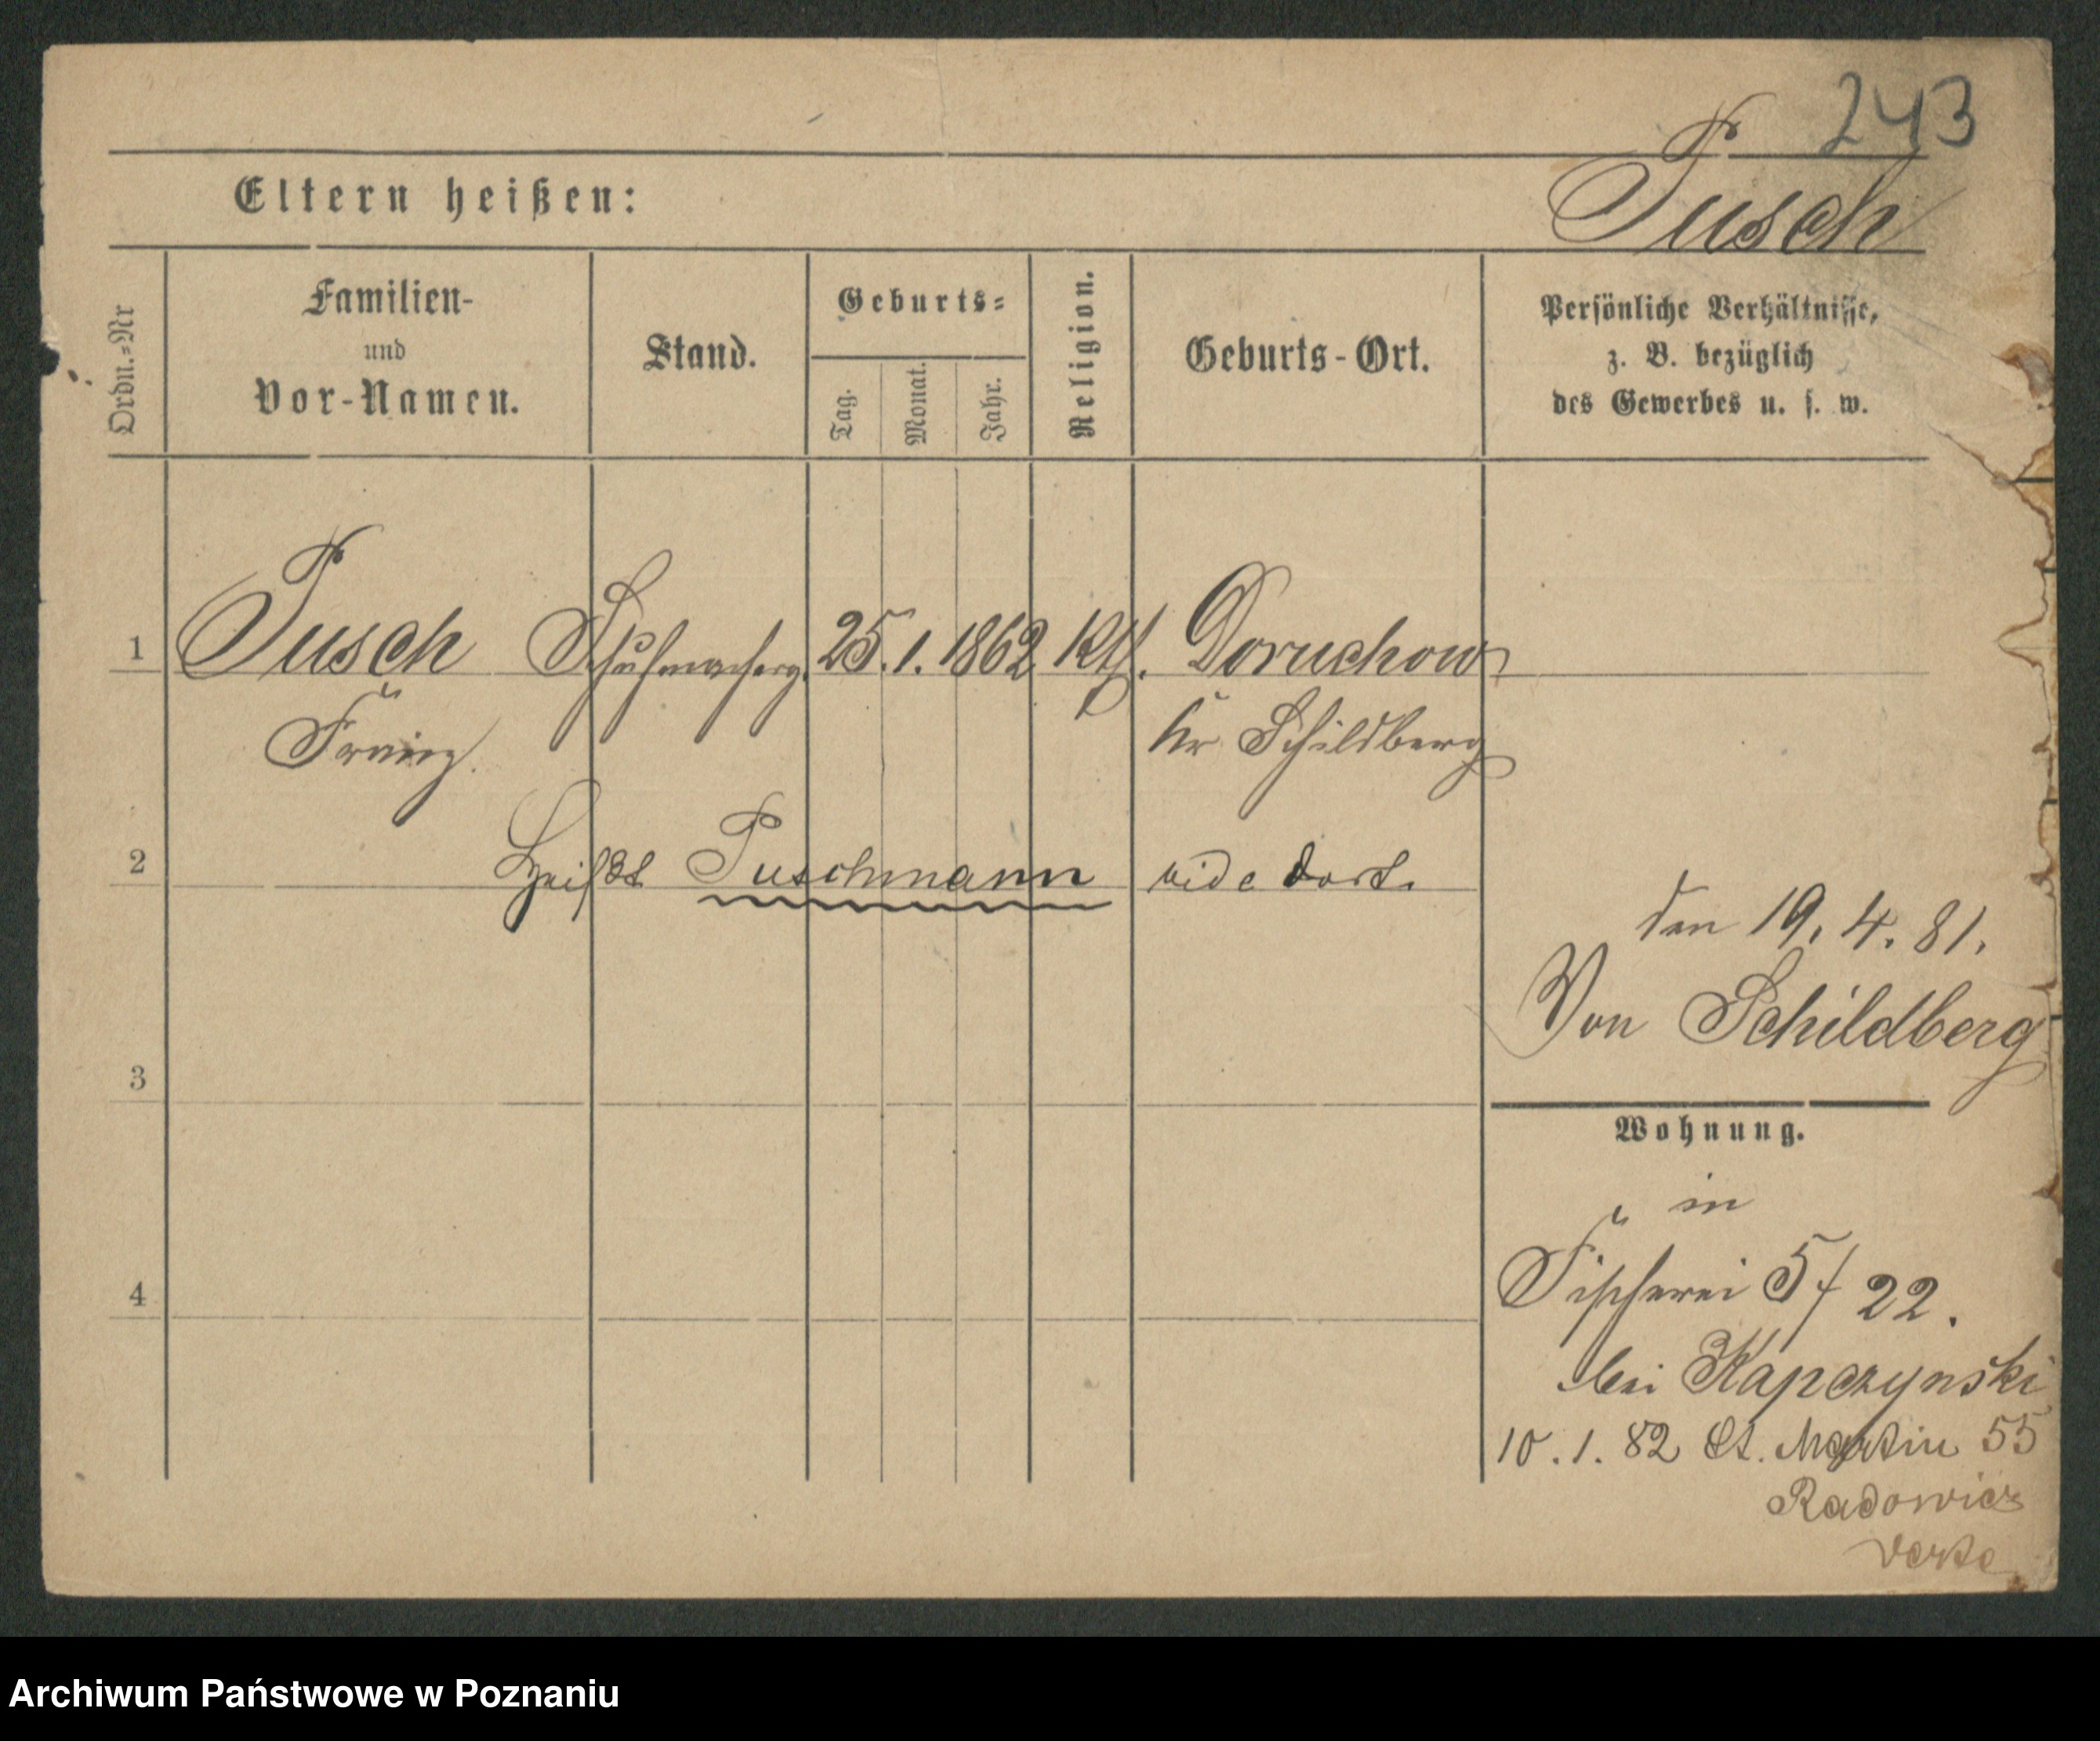 243
Pusch
Eltern heißen:
Ordn.=Nr
Familien-
und
Vor-Namen.
Stand.
Geburts=
Tag.
Monat.
Jahr.
Religion.
Geburts-Ort.
Persönliche Verhältnisse,
z. B. bezüglich
des Gewerbes u. s. w.
1 Pusch Schuhmacherg. 25. 1. 1862 Kth. Doruchow
Franz. Kr Schildberg
2 Heißt Puschmann vide dort.
den 19. 4. 81.
Von Schildberg
3
Wohnung.
in
4 Fischerei 5/22.
bei Kapczynski
10. 1. 82 St. Martin 55
Radowicz
Archiwum Państwowe w Poznaniu